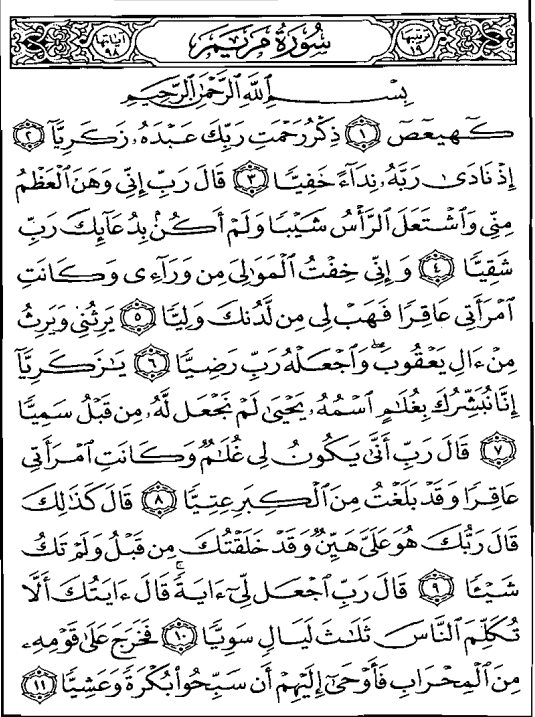 ترتيبها ١٩ سُورَةُ مَرْيَم آياتها ٩٨
بِسْمِ ٱللَّهِ ٱلرَّحْمَٰنِ ٱلرَّحِيمِ
كٓهيعٓصٓ ١ ذِكْرُ رَحْمَتِ رَبِّكَ عَبْدَهُۥ زَكَرِيَّآ ٢
إِذْ نَادَىٰ رَبَّهُۥ نِدَآءً خَفِيًّا ٣ قَالَ رَبِّ إِنِّى وَهَنَ ٱلْعَظْمُ
مِنِّى وَٱشْتَعَلَ ٱلرَّأْسُ شَيْبًا وَلَمْ أَكُنۢ بِدُعَآئِكَ رَبِّ
شَقِيًّا ٤ وَإِنِّى خِفْتُ ٱلْمَوَٰلِىَ مِن وَرَآءِى وَكَانَتِ
ٱمْرَأَتِى عَاقِرًا فَهَبْ لِى مِن لَّدُنكَ وَلِيًّا ٥ يَرِثُنِى وَيَرِثُ
مِنْ ءَالِ يَعْقُوبَ ۖ وَٱجْعَلْهُ رَبِّ رَضِيًّا ٦ يَٰزَكَرِيَّآ
إِنَّا نُبَشِّرُكَ بِغُلَٰمٍ ٱسْمُهُۥ يَحْيَىٰ لَمْ نَجْعَل لَّهُۥ مِن قَبْلُ سَمِيًّا
٧ قَالَ رَبِّ أَنَّىٰ يَكُونُ لِى غُلَٰمٌ وَكَانَتِ ٱمْرَأَتِى
عَاقِرًا وَقَدْ بَلَغْتُ مِنَ ٱلْكِبَرِ عِتِيًّا ٨ قَالَ كَذَٰلِكَ
قَالَ رَبُّكَ هُوَ عَلَىَّ هَيِّنٌ وَقَدْ خَلَقْتُكَ مِن قَبْلُ وَلَمْ تَكُ
شَيْـًٔا ٩ قَالَ رَبِّ ٱجْعَل لِّىٓ ءَايَةً ۚ قَالَ ءَايَتُكَ أَلَّا
تُكَلِّمَ ٱلنَّاسَ ثَلَٰثَ لَيَالٍ سَوِيًّا ١٠ فَخَرَجَ عَلَىٰ قَوْمِهِۦ
مِنَ ٱلْمِحْرَابِ فَأَوْحَىٰٓ إِلَيْهِمْ أَن سَبِّحُوا۟ بُكْرَةً وَعَشِيًّا ١١